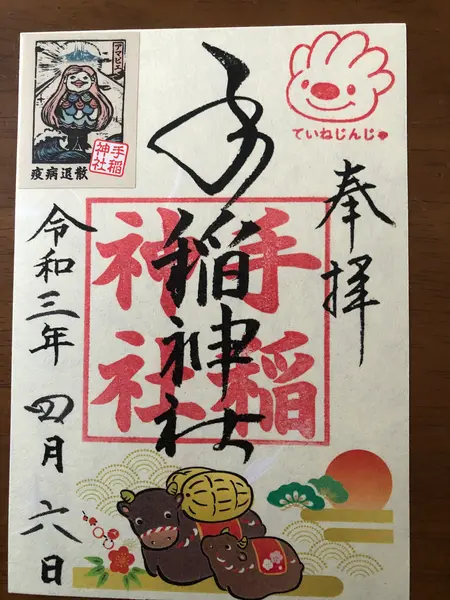 奉拝
手稲神社
手稲
神社
令和三年 四月 六日
ていねじんじゃ
アマビエ
手稲
神社
疫病退散